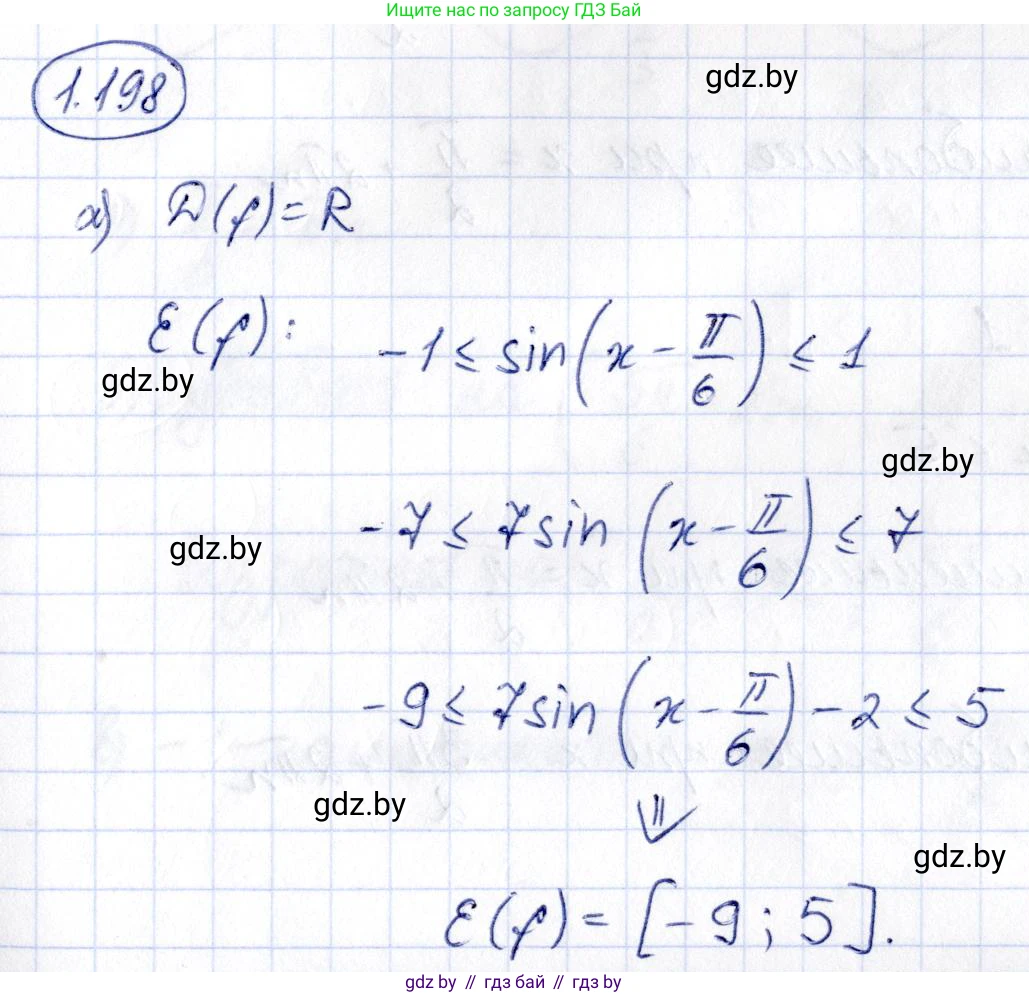 Ищите нас по запросу ГДЗ Бай
gdz.by
1.198
а) D(f) = R
E(f): -1 ≤ sin(x - π/6) ≤ 1
gdz.by
gdz.by
-7 ≤ 7sin(x - π/6) ≤ 7
gdz.by
-9 ≤ 7sin(x - π/6) - 2 ≤ 5
gdz.by
⇓
gdz.by
E(f) = [-9; 5].
gdz.by // гдз бай // гдз by